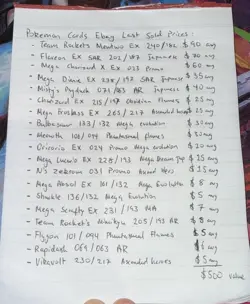 Pokemon Cards Ebay Last Sold Prices:
- Team Rockets Mewtwo Ex 240/182 $90 avg
- Flareon Ex SAR 202/187 Japanese $70 avg
- Mega Charizard X Ex 023 Promo $60 avg
- Mega Diancie Ex SAR Japanese $35 avg
- Misty's Psyduck 071/063 AR Japanese $40 avg
- Charizard Ex 215/197 Obsidian Flames $25 avg
- Mega Froslass Ex 265/217 Ascended heroes $25 avg
- Bulbasaur 133/132 Mega evolution $30 avg
- Meowth 101/094 Phantasmal flames avg
- Oricorio Ex 024 Promo Mega evolution $20 avg
- Mega Lucario Ex 228/193 Mega Dream $25 avg
- N's Zekrom 031 Promo $15 avg
- Mega Absol Ex 101/132 Mega Evolution $8 avg
- Shuckle 136/132 Mega Evolution $5 avg
- Mega 231/193 $7 avg
- Team Rocket's 205/193 AR $5 avg
- Flygon 101/094 Phantasmal Flames $5 avg
- Rapidash 069/063 AR $6 avg
- Vikavolt 230/217 Ascended heroes $5 avg
$500 value